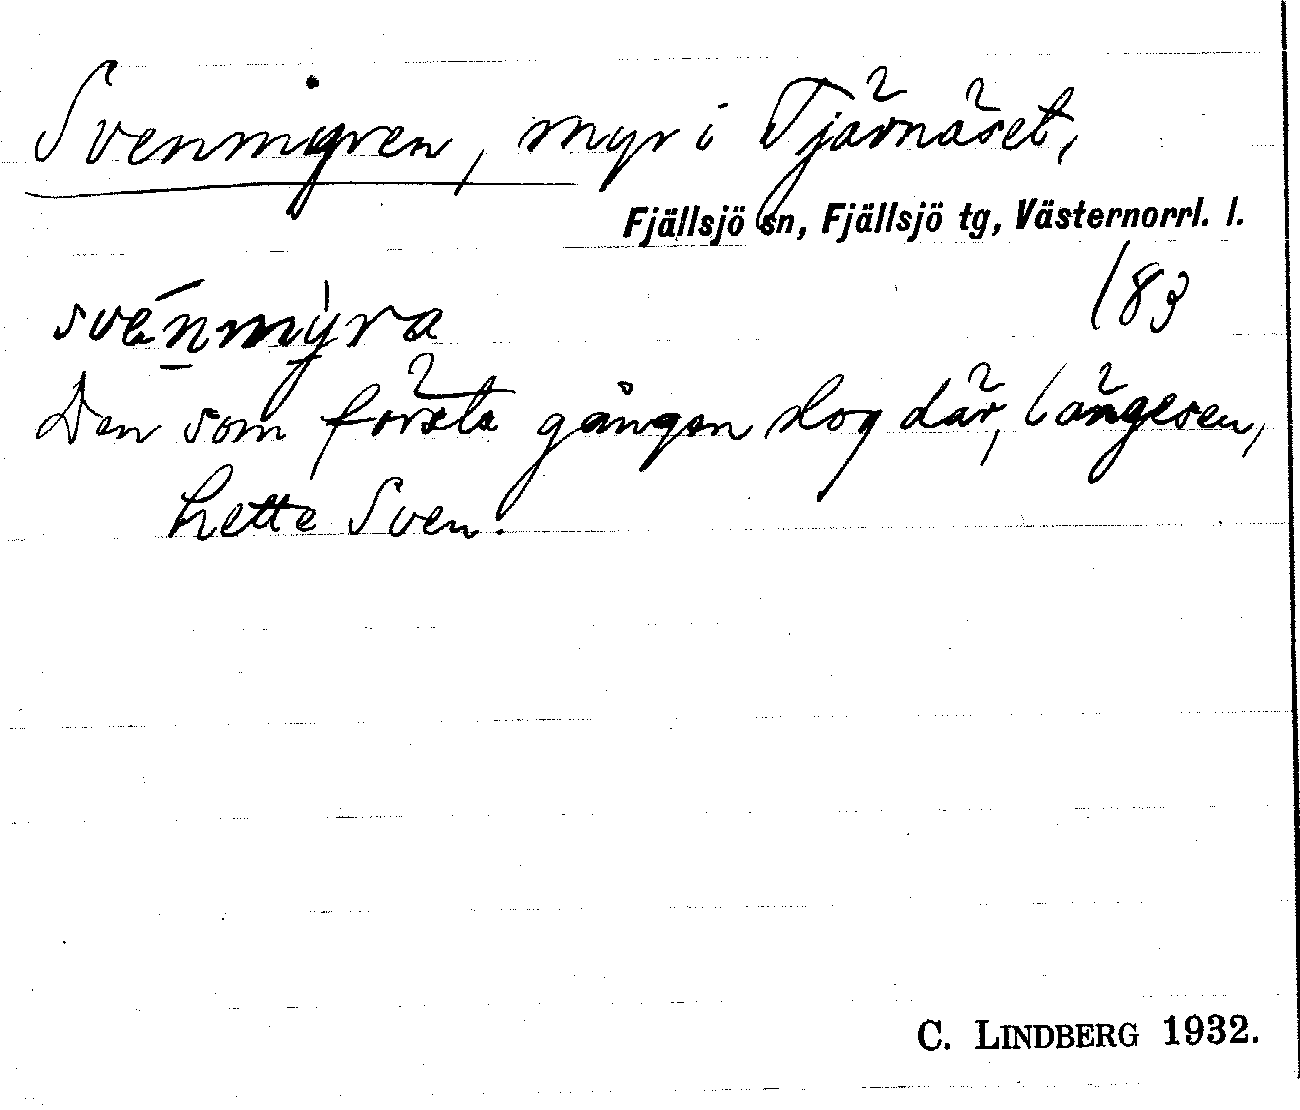 Svenmyren, myr i Tjärnäset,
Fjällsjö sn, Fjällsjö tg, Västernorrl. l.
183
svénmỳra
Den som första gången slog där, längesen,
hette Sven.
C. LINDBERG 1932.